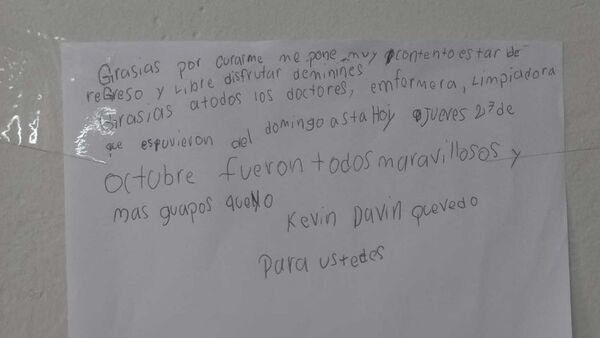 Grasias por curarme me pone muy contento estar de
reGreso y Libre disfrutar deminines
Grasias atodos los doctores, emfermera, Limpiadora
que espuvieron del domingo asta Hoy Jueves 27 de
octubre fueron todos maravillosos y
mas guapos queyo
Kevin Davin quevedo
Para ustedes